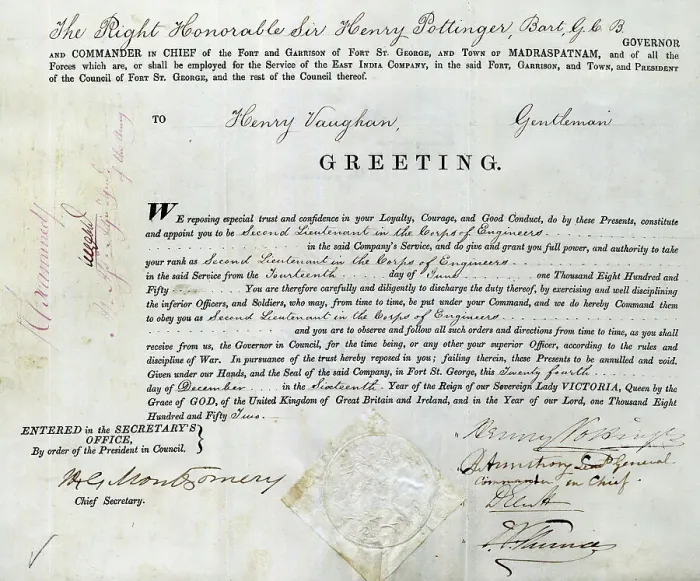 The Right Honorable Sir Henry Pottinger, Bart, G.C.B.
GOVERNOR
AND COMMANDER IN CHIEF of the Fort and Garrison of FORT ST. GEORGE, AND TOWN OF MADRASPATNAM, and of all the
Forces which are, or shall be employed for the Service of the EAST INDIA COMPANY, in the said FORT, GARRISON, and TOWN, and PRESIDENT
of the Council of FORT ST. GEORGE, and the rest of the Council thereof.
TO Henry Vaughan, Gentleman
GREETING.
WE reposing especial trust and confidence in your Loyalty, Courage, and Good Conduct, do by these Presents, constitute
and appoint you to be Second Lieutenant in the Corps of Engineers
in the said Company's Service, and do give and grant you full power, and authority to take
your rank as Second Lieutenant in the Corps of Engineers
in the said Service from the Fourteenth day of June one Thousand Eight Hundred and
Fifty You are therefore carefully and diligently to discharge the duty thereof, by exercising and well disciplining
the inferior Officers, and Soldiers, who may, from time to time, be put under your Command, and we do hereby Command them
to obey you as Second Lieutenant in the Corps of Engineers
and you are to observe and follow all such orders and directions from time to time, as you shall
receive from us, the Governor in Council, for the time being, or any other your superior Officer, according to the rules and
discipline of War. In pursuance of the trust hereby reposed in you; failing therein, these Presents to be annulled and void.
Given under our Hands, and the Seal of the said Company, in Fort St. George, this Twenty fourth
day of December in the Sixteenth Year of the Reign of our Sovereign Lady VICTORIA, Queen by the
Grace of GOD, of the United Kingdom of Great Britain and Ireland, and in the Year of our Lord, one Thousand Eight
Hundred and Fifty Two.
ENTERED in the SECRETARY'S
OFFICE,
By order of the President in Council.
H C Montgomery
Chief Secretary.
Henry Pottinger
J Armstrong Lt General
Commander in Chief.
Examined
of the Army